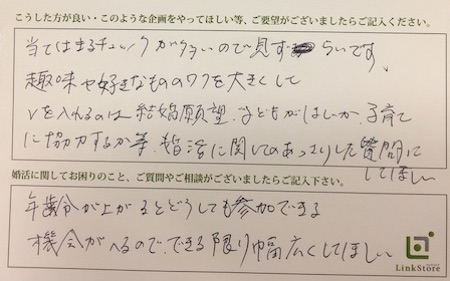 こうした方が良い・このような企画をやってほしい等、ご要望がございましたらご記入ください。
当てはまるチェックが多いので見ずらいです、
趣味や好きなもののワクを大きくして
レを入れるのは結婚願望、子どもがほしいか、子育て
に協力するか等、婚活に関してのあっさりした質問に
してほしい
婚活に関してお困りのこと、ご質問やご相談がございましたらご記入下さい。
年齢が上がるとどうしても参加できる
機会がへるので、できる限り幅広くしてほしい
LinkStore